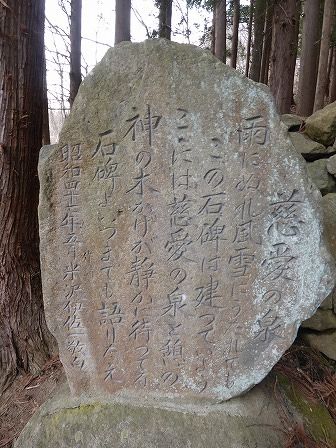 慈愛の泉
雨にぬれ風雪にうたれても
この石碑は建っている
ここには慈愛の泉と頼いの
神の木かげが静かに待っている
石碑よいつまでも語りたまえ
昭和四十年五月 半沢伊佐